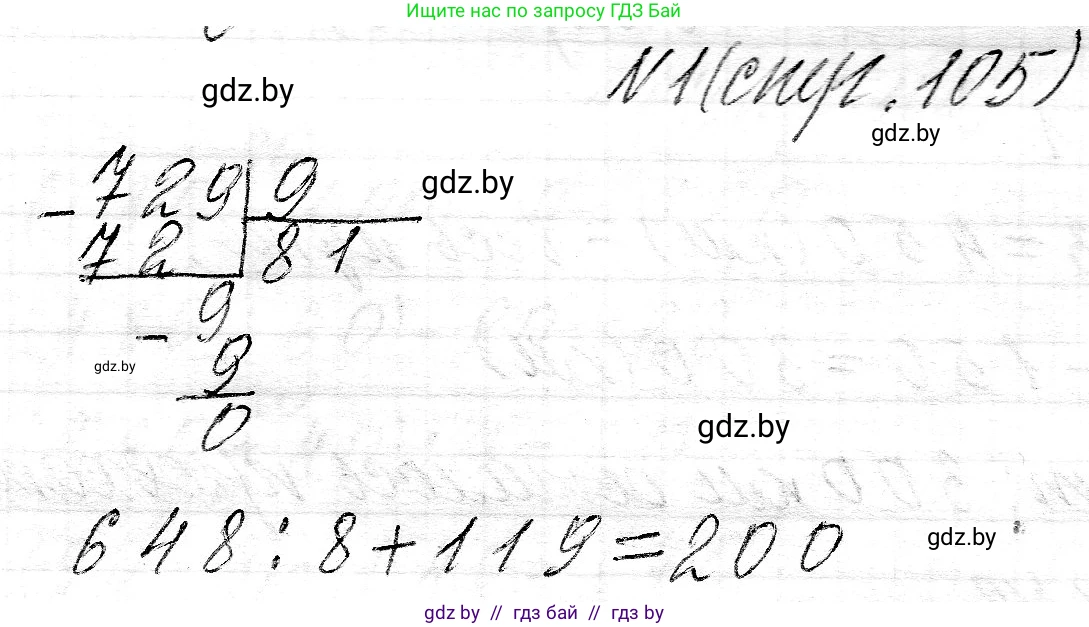 Ищите нас по запросу ГДЗ Бай
N1(стр. 105)
gdz.by
gdz.by
gdz.by
-729 9
72 81
-9
gdz.by
9
0
gdz.by
648:8+119=200
gdz.by
gdz by // гдз бай // гдз by